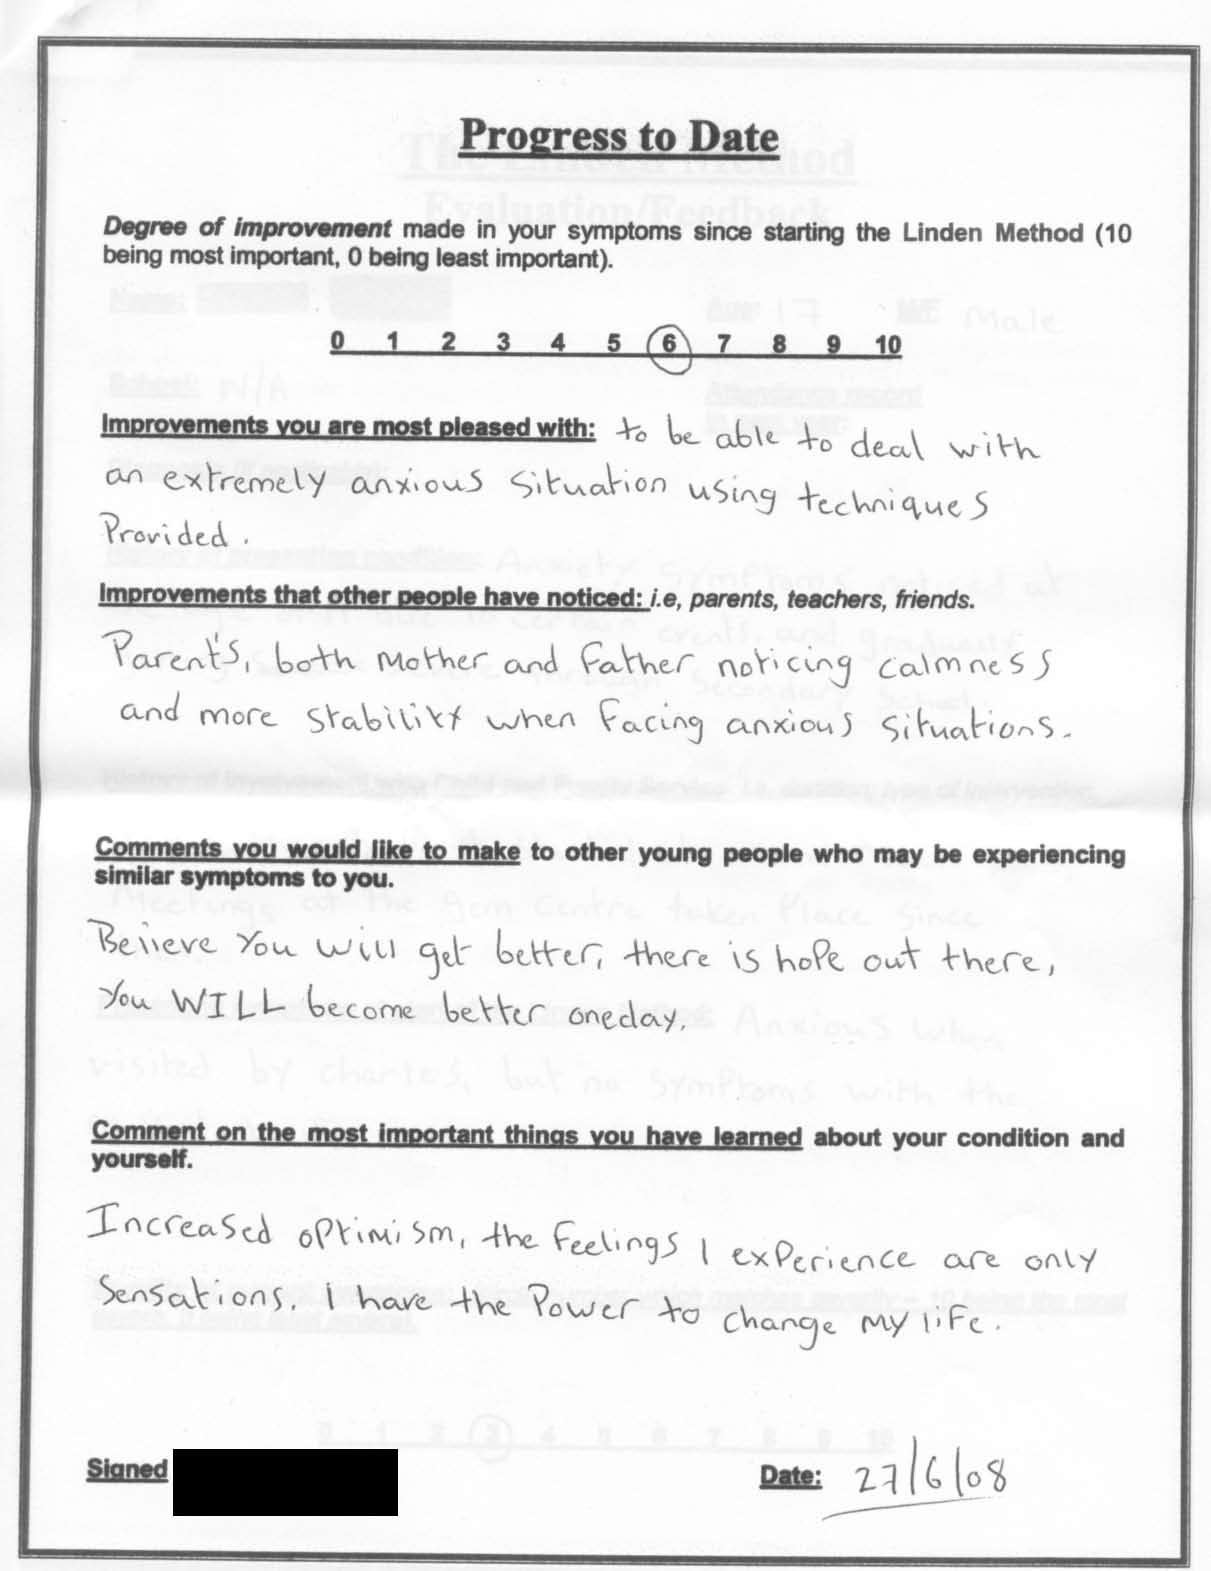 Progress to Date
Degree of improvement made in your symptoms since starting the Linden Method (10
being most important, 0 being least important).
0 1 2 3 4 5 6 7 8 9 10
Improvements you are most pleased with: to be able to deal with
an extremely anxious situation using techniques
Provided.
Improvements that other people have noticed: i.e, parents, teachers, friends.
Parent's, both Mother and Father noticing calmness
and more stability when facing anxious situations.
Comments you would like to make to other young people who may be experiencing
similar symptoms to you.
Believe You will get better, there is hope out there,
You WILL become better oneday.
Comment on the most important things you have learned about your condition and
yourself.
Increased optimism, the feelings I experience are only
Sensations. I have the Power to change my life.
Signed
Date: 27/6/08